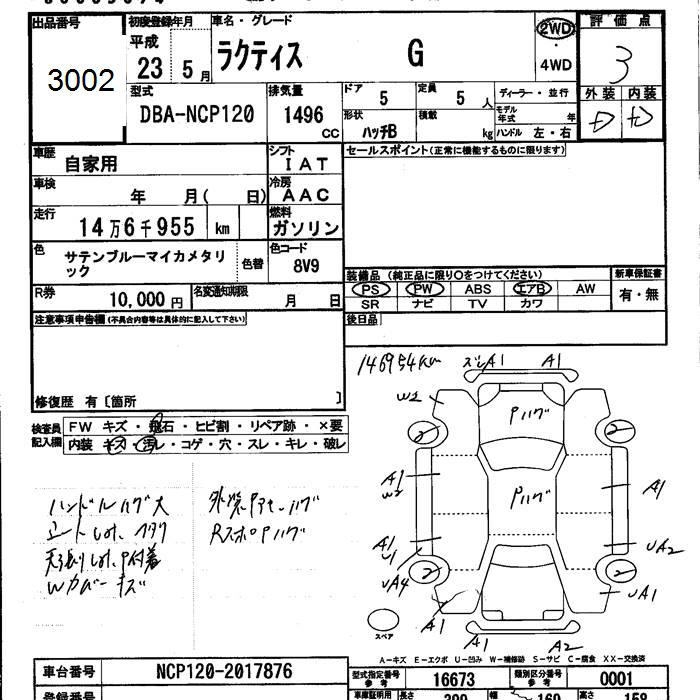 出品番号
3002
初度登録年月
平成
23 5月
車名・グレード
ラクティス G
2WD
4WD
評価点
3
外装 内装
D D
型式
DBA-NCP120
排気量
1496
CC
ドア
5
定員
5人
形状
ハッチB
積載
kg
ディーラー・並行
モデル年式 年
ハンドル 左・右
車歴
自家用
シフト
IAT
車検
年 月( 日)
冷房
AAC
走行
14万6千955 km
燃料
ガソリン
色
サテンブルーマイカメタリック
色替
色コード
8V9
R券
10,000円
名変通知期限
月 日
セールスポイント(正常に機能するものに限ります)
装備品(純正品に限り○をつけてください)
新車保証書
PS PW ABS エアB AW
SR ナビ TV カワ
有・無
後日品
注意事項申告欄(不具合内容等は具体的に記入して下さい)
修復歴 有〔箇所 〕
検査員記入欄
FW キズ・飛石・ヒビ割・リペア跡・×要
内装 キズ・汚レ・コゲ・穴・スレ・キレ・破レ
146954km
A1
A1
W2
Pハゲ
2
2
Pハゲ
A1
W2
A1
A1
U1
UA2
2
2
UA4
UA1
A1
A1
A2
ハンドルハゲ大
天張りしみ、P付着
Wカバーキズ
スペア
A-キズ E-エクボ U-凹み W-補修跡 S-サビ C-腐食 XX-交換済
車台番号
NCP120-2017876
登録番号
型式指定番号
参考
16673
類別区分番号
参考
0001
車庫証明用
長さ
399
幅
169
高さ
158